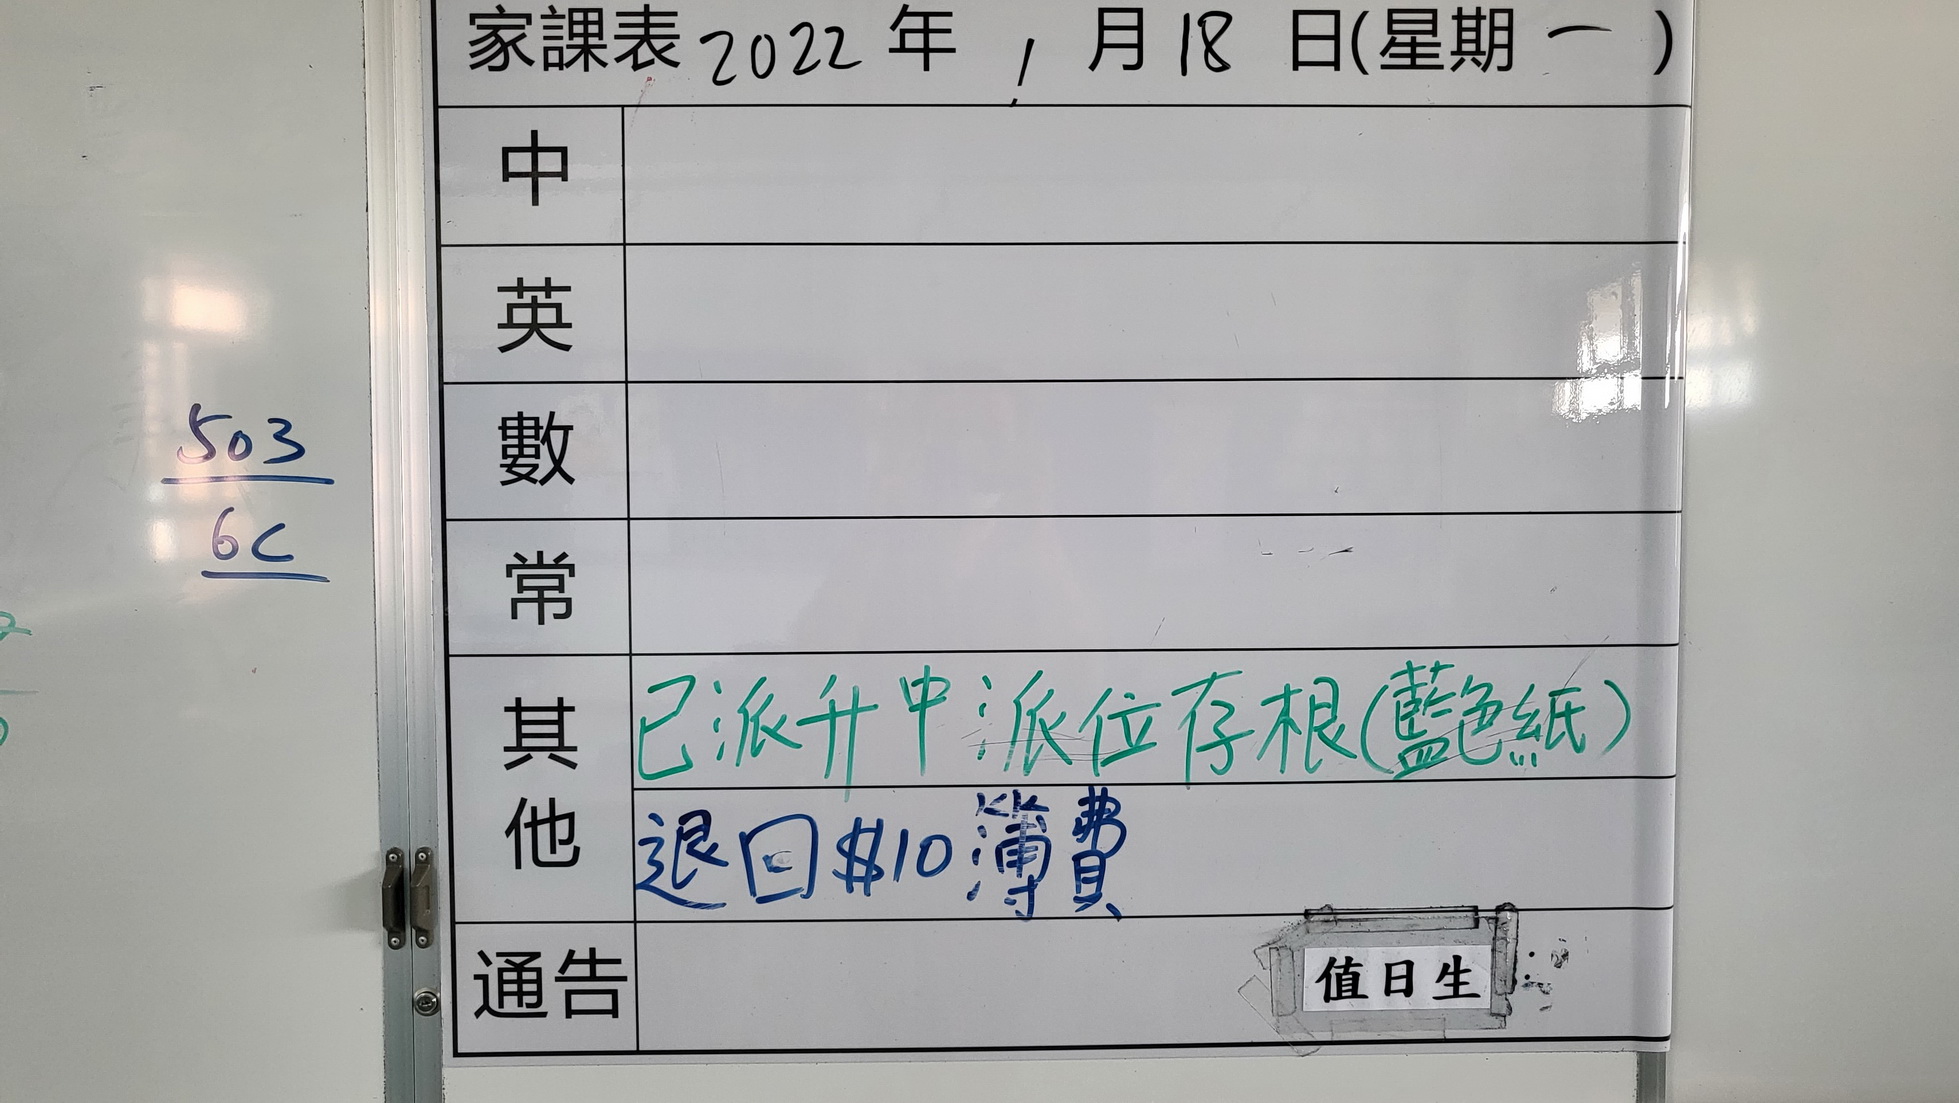 家課表 2022 年 1 月 18 日(星期 一 )
503
6C
中
英
數
常
其他
已派升中派位存根(藍色紙)
退回$10簿費
通告
值日生